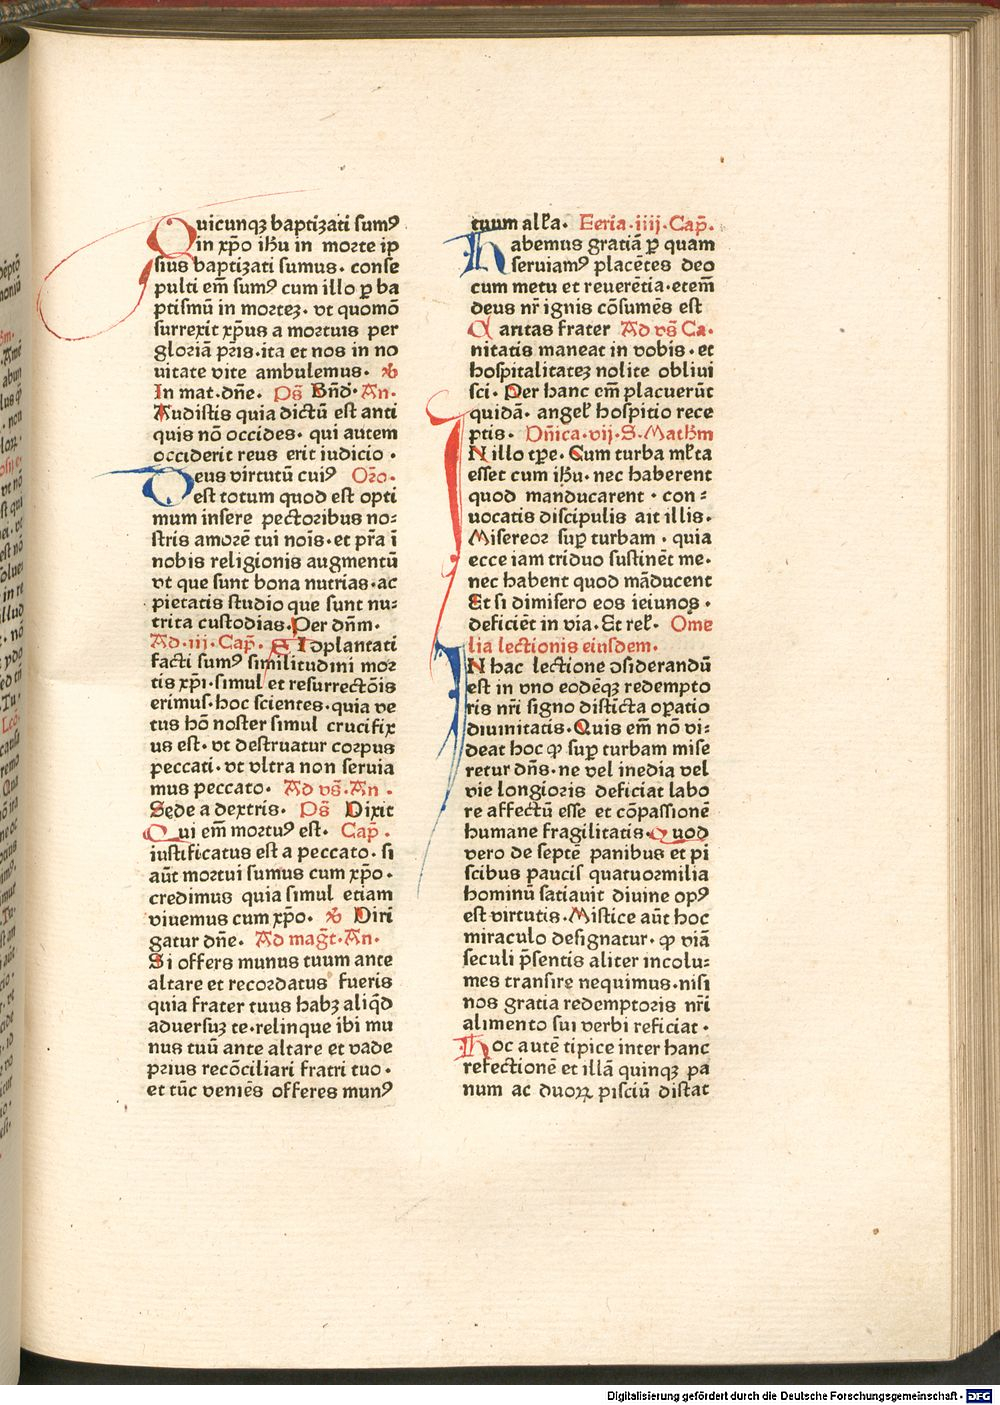 Quicunqꝫ baptizati sumꝰ
in xp̄o ih̄u in morte ip
sius baptizati sumus· conse
pulti em̄ sumꝰ cum illo ꝑ ba
ptismū in morteꝫ· vt quomō
surrexit xp̄us a mortuis per
gloriā pr̄is·ita et nos in no
uitate vite ambulemus· ꝶ
In mat· dn̄e· Ps̄ Bn̄d· An·
Audistis quia dictū est anti
quis nō occides· qui autem
occiderit reus erit iudicio·
Deus virtutū cuiꝰ Or̄o·
est totum quod est opti
mum insere pectoribus no⸗
stris amorē tui noīs·et pr̄a ī
nobis religionis augmentū
vt que sunt bona nutrias·ac
pietatis studio que sunt nu⸗
trita custodias·Per dn̄m·
Ad·iii·Cap̄· Si 9plantati
facti sumꝰ similitudini mor
tis xp̄i·simul et resurrectōis
erimus·hoc scientes·quia ve
tus hō noster simul crucifix
us est·vt destruatur corpus
peccati·vt vltra non seruia
mus peccato· Ad vs̄·An·
Sede a dextris· Ps̄ Dixit
Qui em̄ mortuꝰ est· Cap̄·
iustificatus est a peccato·si
aūt mortui sumus cum xp̄o·
credimus quia simul etiam
viuemus cum xp̄o· ꝶ Diri
gatur dn̄e· Ad maḡt·An·
Si offers munus tuum ante
altare et recordatus fueris
quia frater tuus habꝫ aliq̄d
aduersuꝫ te·relinque ibi mu
nus tuū ante altare et vade
prius recōciliari fratri tuo·
et tūc veniēs offeres munꝰ
tuum all̄a· Feria·iiij·Cap̄·
Habemus gratiā ꝑ quam
seruiamꝰ placētes deo
cum metu et reuerētia·etem̄
deus nr̄ ignis cōsumēs est
Caritas frater Ad vs̄ Ca·
nitatis maneat in vobis·et
hospitalitateꝫ nolite obliui
sci·Per hanc em̄ placuerūt
quidā· angel̄ hospitio rece
ptis· Dn̄ica·vij·S·Math̄m
IN illo tp̄e·Cum turba ml̄ta
esset cum ih̄u·nec haberent
quod manducarent·con⸗
uocatis discipulis ait illis·
Misereor suꝑ turbam·quia
ecce iam triduo sustinēt me·
nec habent quod māducent
Et si dimisero eos ieiunos·
deficiēt in via·Et rel̄· Ome
lia lectionis eiusdem·
IN hac lectione ↄsiderandū
est in vno eodēqꝫ redempto
ris nr̄i signo disticta oꝑatio
diuinitatis·Quis em̄ nō vi⸗
deat hoc ꝙ suꝑ turbam mise
retur dn̄s·ne vel inedia vel
vie longioris deficiat labo
re affectū esse et cōpassionē
humane fragilitatis·Quod
vero de septē panibus et pi
scibus paucis quatuormilia
hominū satiauit diuine opꝰ
est virtutis·Mistice aūt hoc
miraculo designatur·ꝙ viā
seculi p̄sentis aliter incolu⸗
mes transire nequimus·nisi
nos gratia redemptoris nr̄i
alimento sui verbi reficiat·
Hoc autē tipice inter hanc
refectionē et illā quinqꝫ pa
num ac duoꝝ pisciū distat
Digitalisierung gefördert durch die Deutsche Forschungsgemeinschaft - DFG